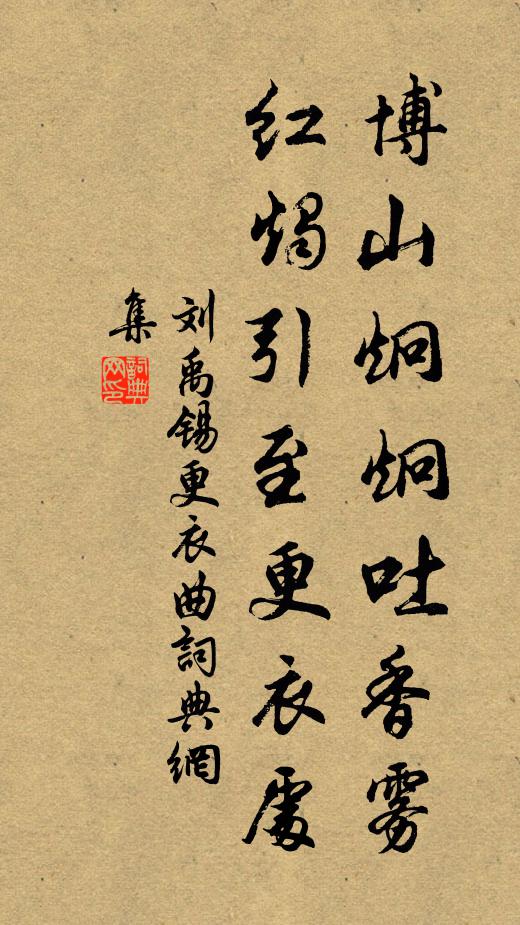 博山炯炯吐香雾
红烛引至更衣處
刘禹锡更衣曲詞典網
集
詞典网印